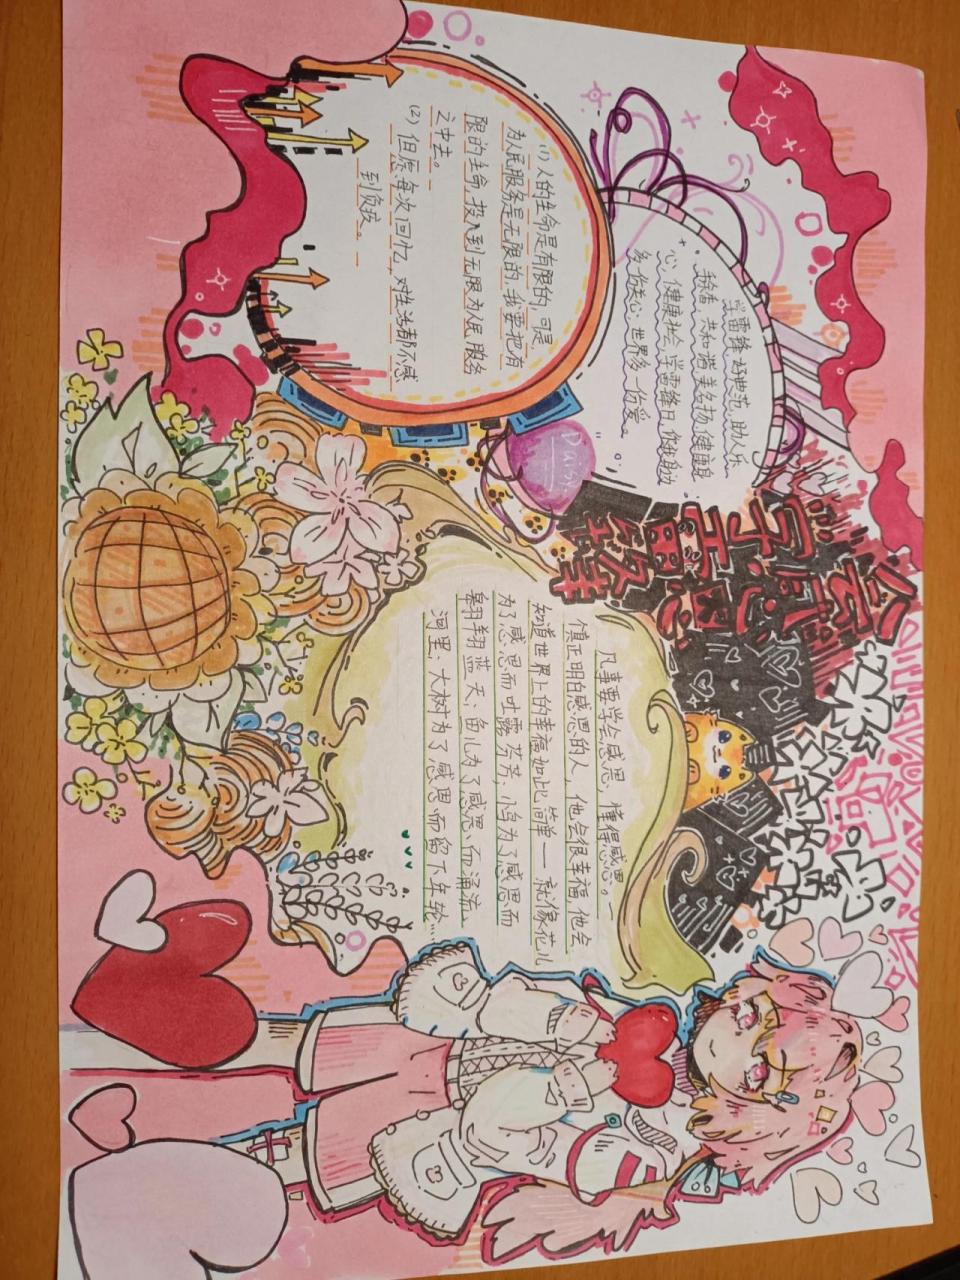 学雷锋
感恩
会
学雷锋好典范,助人乐
共和谐美名扬,健康身
心,健康社会,学雷锋日,你我身边
多一份关心,世界多一份爱。
(1)人的生命是有限的,可是
为人民服务是无限的,我要把有
限的生命,投入到无限为人民服务
之中去。
(2)但愿每次回忆,对生活都不感
到负疚。
Daisy
凡事要学会感恩,懂得感恩。一
慎正明白感恩的人,他会很幸福,他会
知道世界上的幸福如此简单——就像花儿
为了感恩而吐露芬芳;小鸟为了感恩而
翱翔蓝天;鱼儿为了感恩而涌流
河里;大树为了感恩而留下年轮…